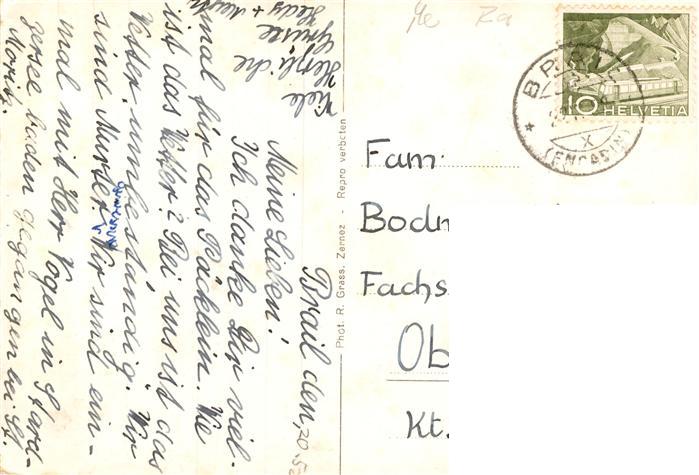 Brail den, 20. 52
Meine Lieben!
Ich danke Dir viel-
mal für das Päcklein. Wie
ist das Wetter? Bei uns ist das
Wetter unbeständig. Wir
sind Munter. Wir sind ein-
mal mit Herr Vogel in Stard-
zersee baden gegangen bei St.
Moritz.
Viele
Herzliche
Grüsse
Hedy +
Phot. R. Grass. Zernez - Repro verboten
Fam.
Bodn
Fachs
Ob
Kt.
BRAIL
(ENGADIN)
X
10 HELVETIA
Za